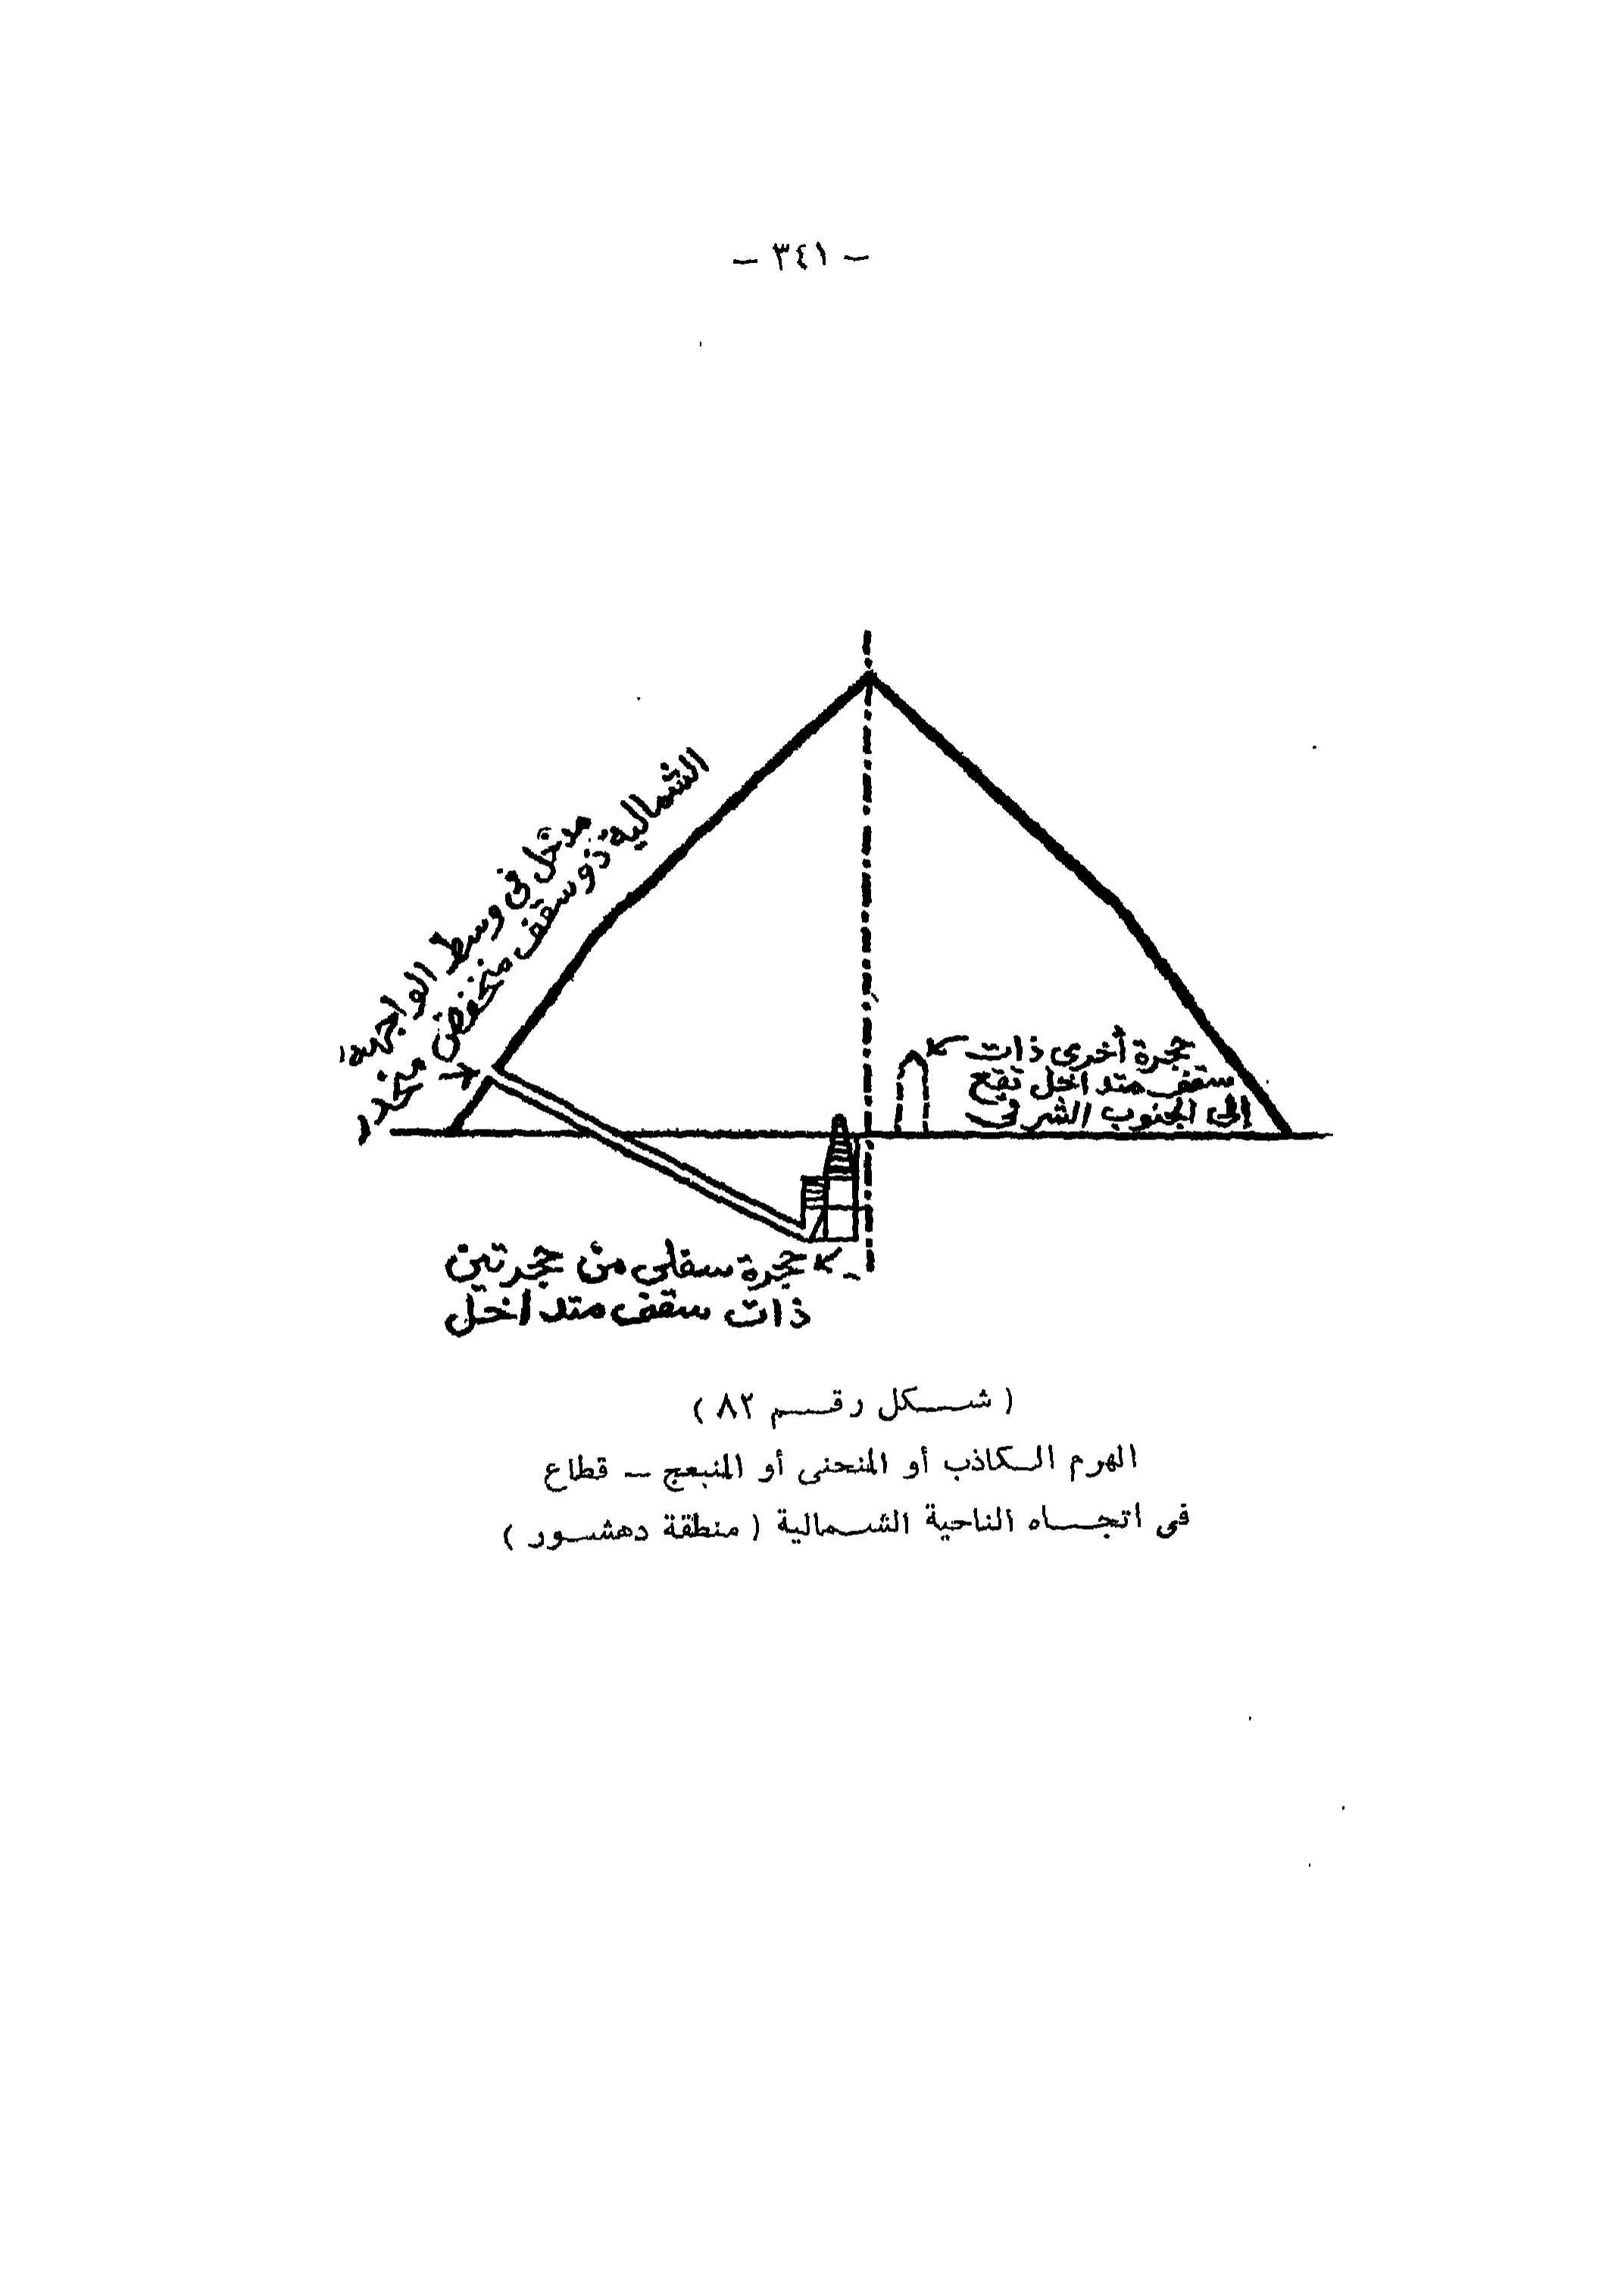 — ٣٤١ —
مدخل فى وسط الواجهة
الشمالية ذو سقف منخفض منحدر
حجرة أخرى ذات
سقف متداخل تقع
إلى الجنوب الشرقى
حجرة سفلى من حجرتين
ذات سقف متداخل
( شكل رقم ٨٢ )
الهرم الكاذب أو المنحنى أو المنبعج — قطاع
فى اتجاه الناحية الشمالية ( منطقة دهشور )